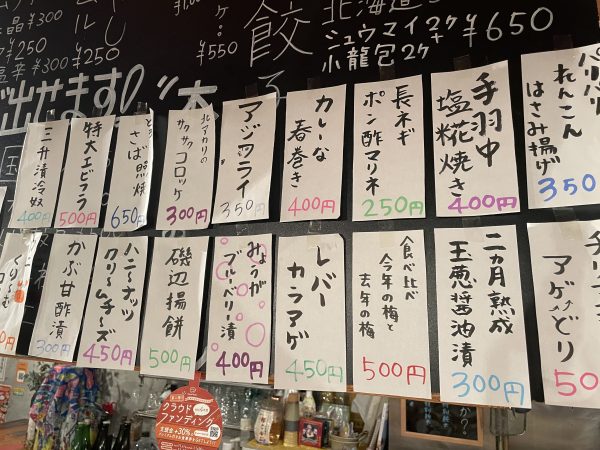 ¥300
¥250
¥300 ¥250
¥550
餃子
北海道
シュウマイ2ケ
+
小龍包2ケ
¥650
出せます
三升漬冷奴
400円
特大エビフライ
500円
とろさば照焼
650円
北アカリの
サクサクコロッケ
300円
アジフライ
350円
カレーな
春巻き
400円
長ネギ
ポン酢マリネ
250円
手羽中
塩糀焼き
400円
パリパリ
れんこん
はさみ揚げ
350
かぶ甘酢漬
300円
ハニーナッツ
クリームチーズ
450円
磯辺揚餅
500円
みょうが
ブルーベリー漬
400円
レバー
カラアゲ
450円
食べ比べ
今年の梅と
去年の梅
500円
二ヵ月熟成
玉葱醤油漬
300円
アゲどり
クラウド
ファンディング
支援金+30%